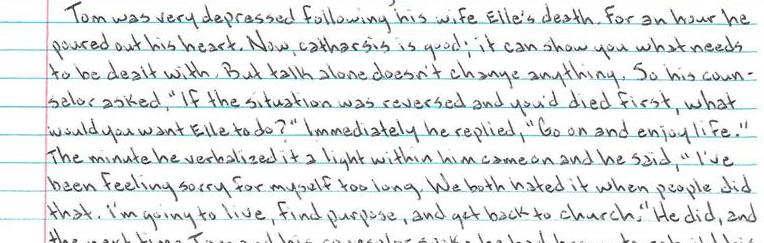 Tom was very depressed following his wife Elle's death. For an hour he
poured out his heart. Now, catharsis is good; it can show you what needs
to be dealt with. But talk alone doesn't change anything. So his coun-
selor asked, "If the situation was reversed and you'd died first, what
would you want Elle to do?" Immediately he replied, "Go on and enjoy life."
The minute he verbalized it a light within him came on and he said, "I've
been feeling sorry for myself too long. We both hated it when people did
that. I'm going to live, find purpose, and get back to church." He did, and
the next time Tom and his counselor